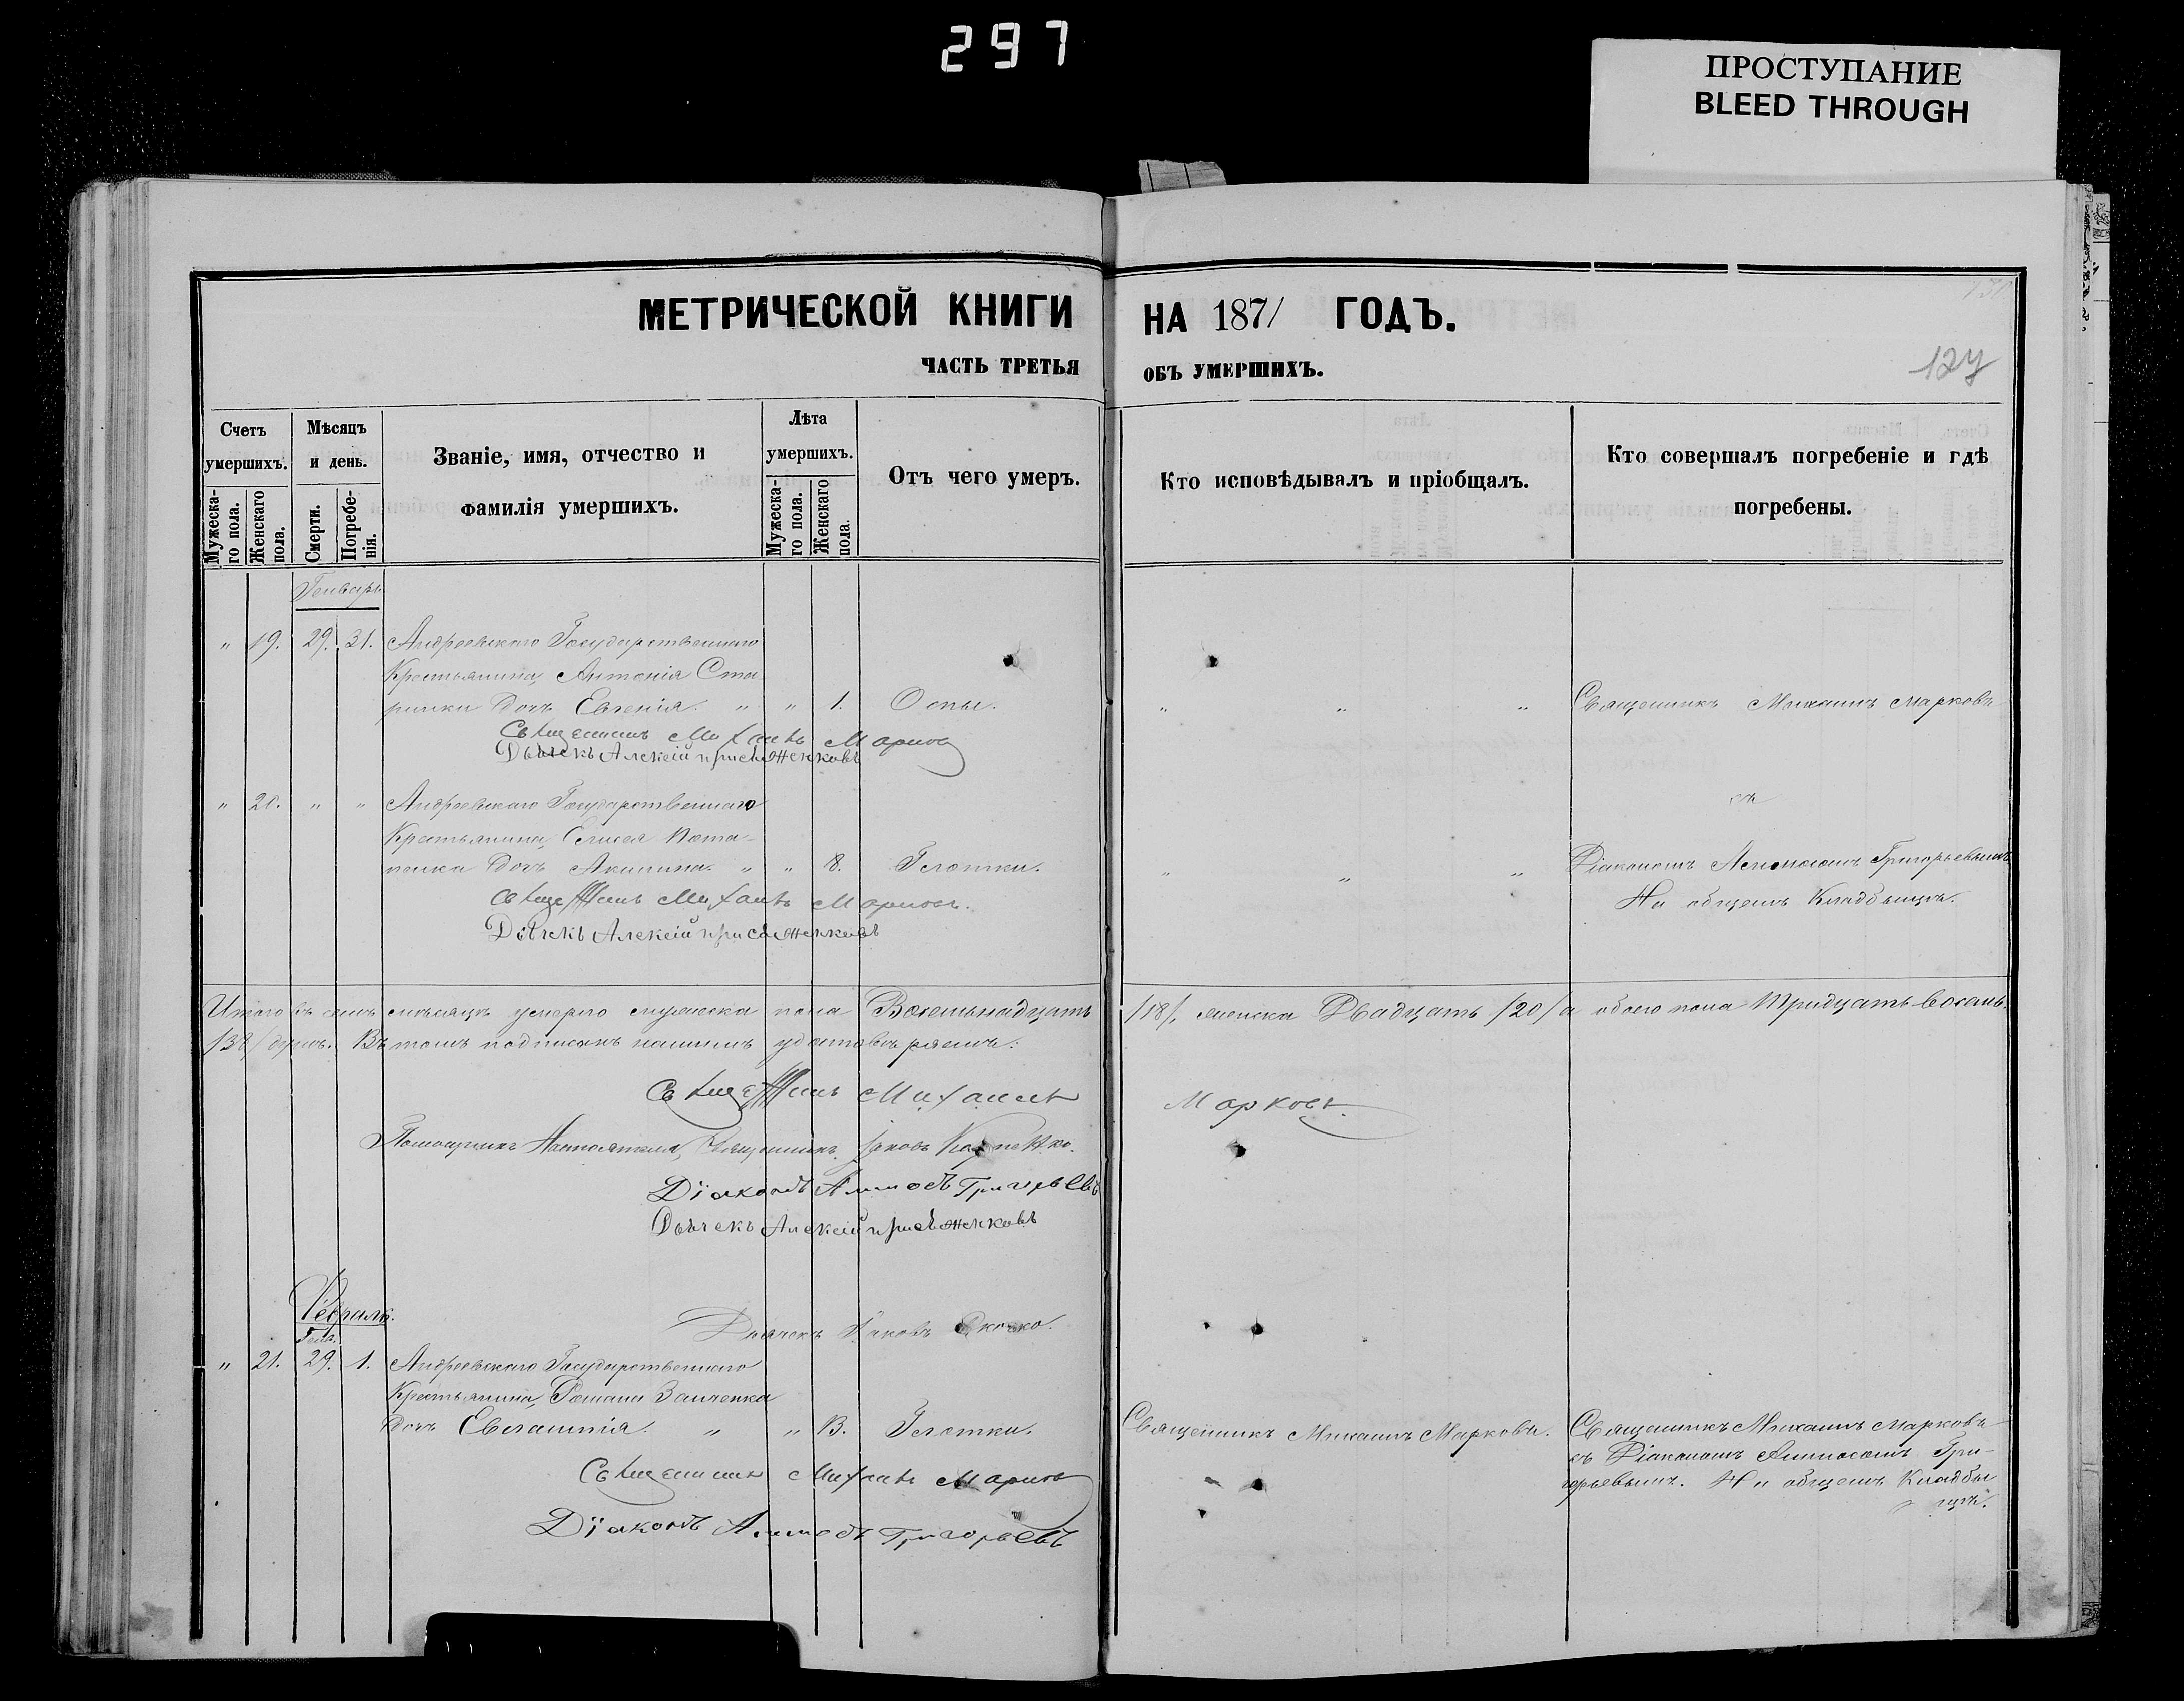 297
ПРОСТУПАНИЕ
BLEED THROUGH
МЕТРИЧЕСКОЙ КНИГИ НА 1871 ГОДЪ.
ЧАСТЬ ТРЕТЬЯ ОБЪ УМЕРШИХЪ.
Счетъ умершихъ.
Мужеска-го пола.
Женскаго пола.
Мѣсяцъ и день.
Смерти.
Погребе-нія.
Званіе, имя, отчество и
фамилія умершихъ.
Лѣта умершихъ.
Мужеска-го пола.
Женскаго пола.
Отъ чего умеръ.
Кто исповѣдывалъ и пріобщалъ.
Кто совершалъ погребеніе и гдѣ
погребены.
Генварь
" 19. 29. 31. Андреевскаго Государственнаго
Крестьянина, Антонія Ста-
ринки дочь Евгенія. " " 1. Оспы. " " " Священникъ Михаилъ Марковъ
Священникъ Михаилъ Марковъ
Дьячекъ Алексій
" 20. " " Андреевскаго Государственнаго
съ
Крестьянина, Елисея Пота-
пенка дочь Акилина. " " 8. Глотки. " " " Діакономъ Григорьевымъ
На общемъ Кладбищѣ.
Священникъ Михаилъ Марковъ.
Дьячекъ Алексій
Итого въ семъ мѣсяцѣ умерло мужеска пола Восемьнадцать /18/, женска Двадцать /20/ а обоего пола Тридцать восемь
/38/ душъ. Въ томъ подписомъ нашимъ удостовѣряемъ:
Священникъ Михаилъ Марковъ.
Помощникъ Настоятеля, Священникъ Іаковъ
Діаконъ Григорьевъ
Дьячекъ Алексій
Февраль.
Дьячекъ Яковъ
Генв.
" 21. 29. 1. Андреевскаго Государственнаго
Крестьянина, Романа Заиченка
дочь " " 13. Глотки. Священникъ Михаилъ Марковъ. Священникъ Михаилъ Марковъ
съ Діакономъ Гри-
горьевымъ. На общемъ Кладби
щѣ.
Священникъ Михаилъ Марковъ
Діаконъ Григорьевъ